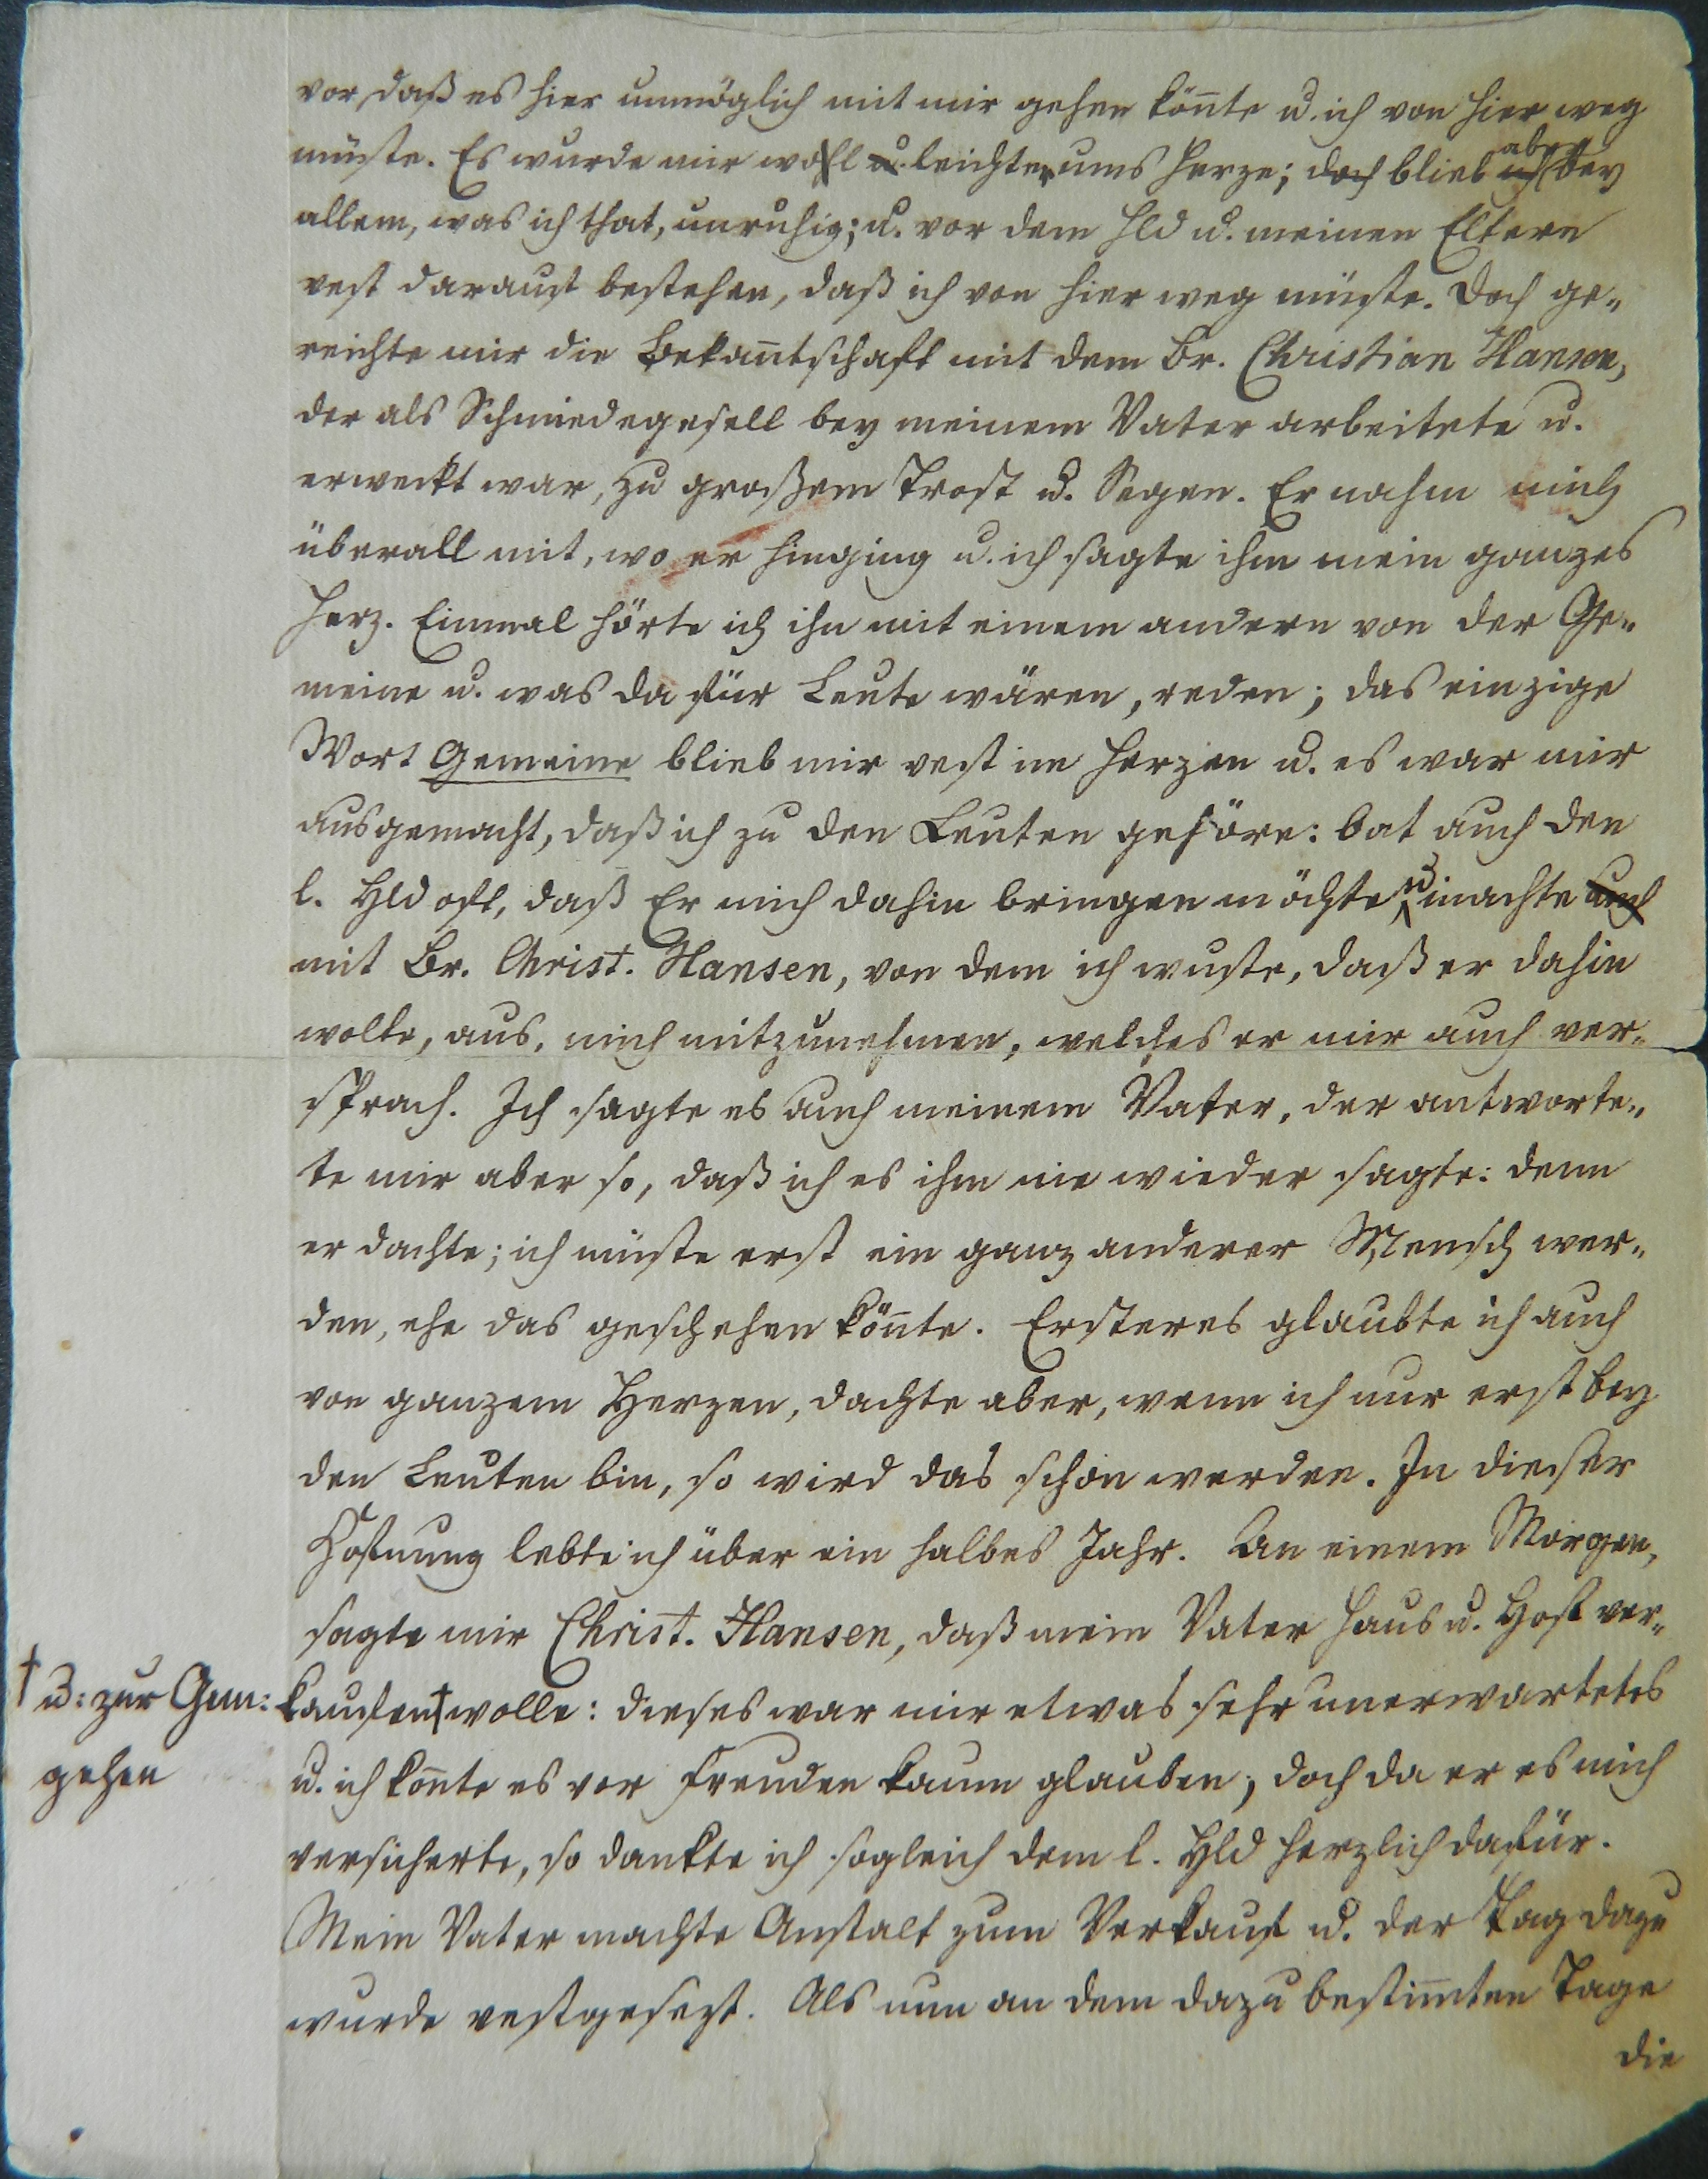 vor, daß es hier unmöglich mit mir gehen kön̄te u. ich von hier weg
müste. Es wurde mir wohl u. leichter ums Herze; doch blieb ich aber bey
allem, was ich that, unruhig; u. vor dem Hld u. meinen Eltern
vest darauf bestehen, daß ich von hier weg müste. Doch ge-
reichte mir die Bekan̄tschaft mit dem Br. Christian Hansen,
der als Schmiedegesell bey meinem Vater arbeitete u.
erweckt war, zu großem Trost u. Segen. Er nahm mich
überall mit, wo er hinging u. ich sagte ihm mein ganzes
Herz. Einmal hörte ich ihn mit einem andern von der Ge-
meine u. was da für Leute wären, reden; das einzige
Wort Gemeine blieb mir vest im Herzen u. es war mir
ausgemacht, daß ich zu den Leuten gehöre: bat auch den
l. Hld oft, daß Er mich dahin bringen möchte u. machte auch
mit Br. Christ. Hansen, von dem ich wuste, daß er dahin
wolte, aus, mich mitzunehmen, welches er mir auch ver-
sprach. Ich sagte es auch meinem Vater, der antworte-
te mir aber so, daß ich es ihm nie wieder sagte: denn
er dachte; ich müste erst ein ganz anderer Mensch wer-
den, ehe das geschehen kön̄te. Ersteres glaubte ich auch
von ganzem Herzen, dachte aber, wenn ich nur erst bey
den Leuten bin, so wird das schon werden. In dieser
Hofnung lebte ich über ein halbes Jahr. An einem Morgen,
sagte mir Christ. Hansen, daß mein Vater Haus u. Hof ver-
kaufen † wolle: dieses war mir etwas sehr unerwartetes
† u: zur Gem:
gehen
u. ich kon̄te es vor Freuden kaum glauben; doch da er es mich
versicherte, so dankte ich sogleich dem l. Hld herzlich dafür.
Mein Vater machte Anstalt zum Verkauf u. der Tag dazu
wurde vestgesezt. Als nun an dem dazu bestim̄ten Tage
die